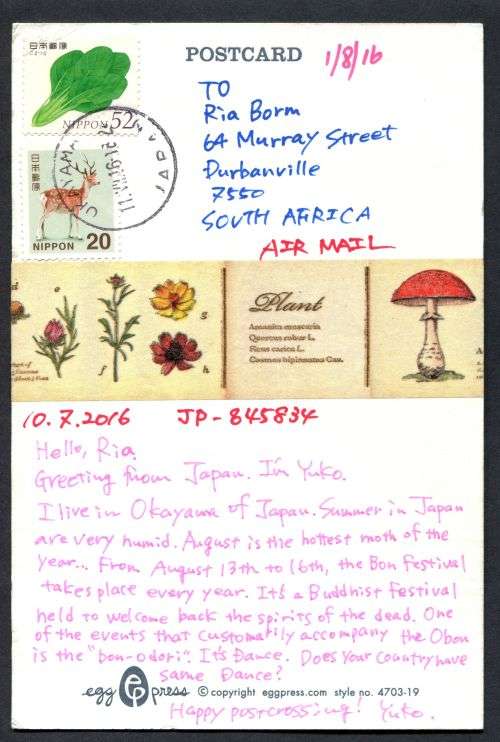 日本郵便
NIPPON 52
日本郵便
NIPPON 20
JAPAN
POSTCARD
1/8/16
TO
Ria Borm
64 Murray Street
Durbanville
7550
SOUTH AFRICA
AIR MAIL
e
f
g
h
Plant
Amanita muscaria
Quercus robur L.
Ficus carica L.
Cosmos bipinnatus Cav.
10.7.2016 JP-845834
Hello, Ria.
Greeting from Japan. I'm Yuko.
I live in Okayama of Japan. Summer in Japan
are very humid. August is the hottest moth of the
year... From August 13th to 16th, the Bon Festival
takes place every year. It's a Buddhist festival
held to welcome back the spirits of the dead. One
of the events that customarily accompany the Obon
is the "bon-odori". It's Dance. Does Your country have
same Dance?
egg press © copyright eggpress.com style no. 4703-19
Happy postcrossing! Yuko.